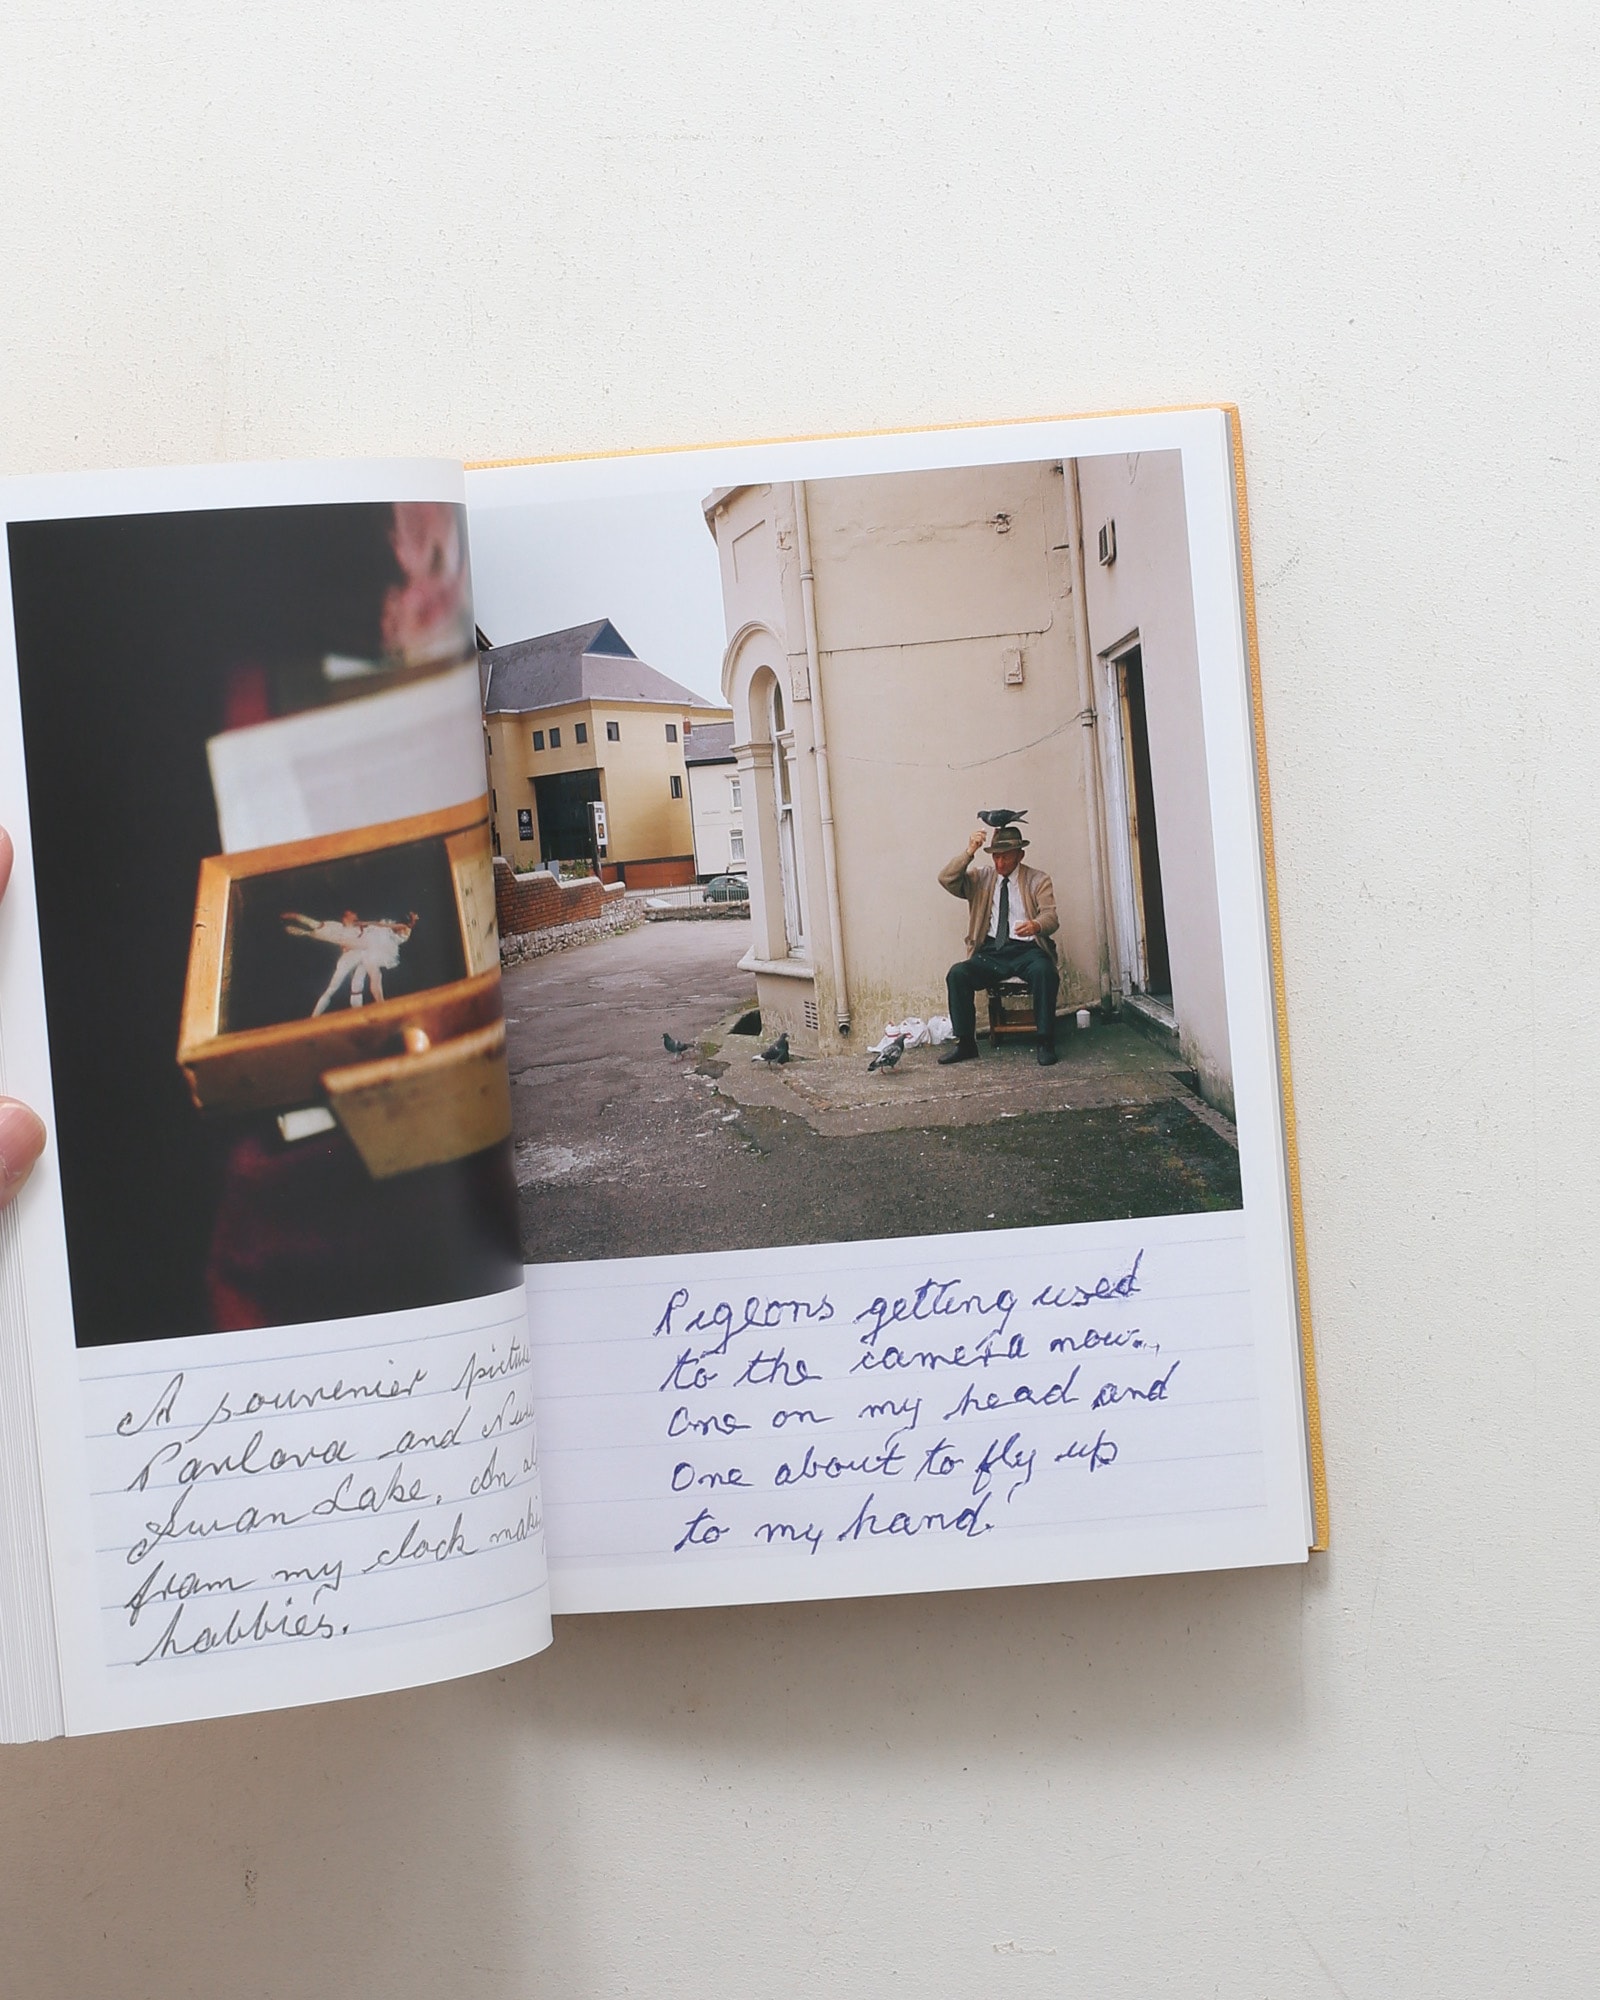 A souvenier picture
Pavlova and
Swan Lake. An
from my clock
hobbies.
Pigeons getting used
to the camera now..,
One on my head and
One about to fly up
to my hand!